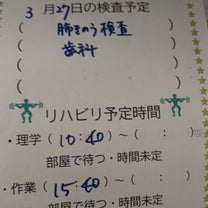 3月27日の検査予定
(肺きのう検査)
(歯科)
( )
( )
リハビリ予定時間
・理学(10:40)〜( : )
部屋で待つ・時間未定
・作業(15:40)〜( : )
部屋で待つ・時間未定